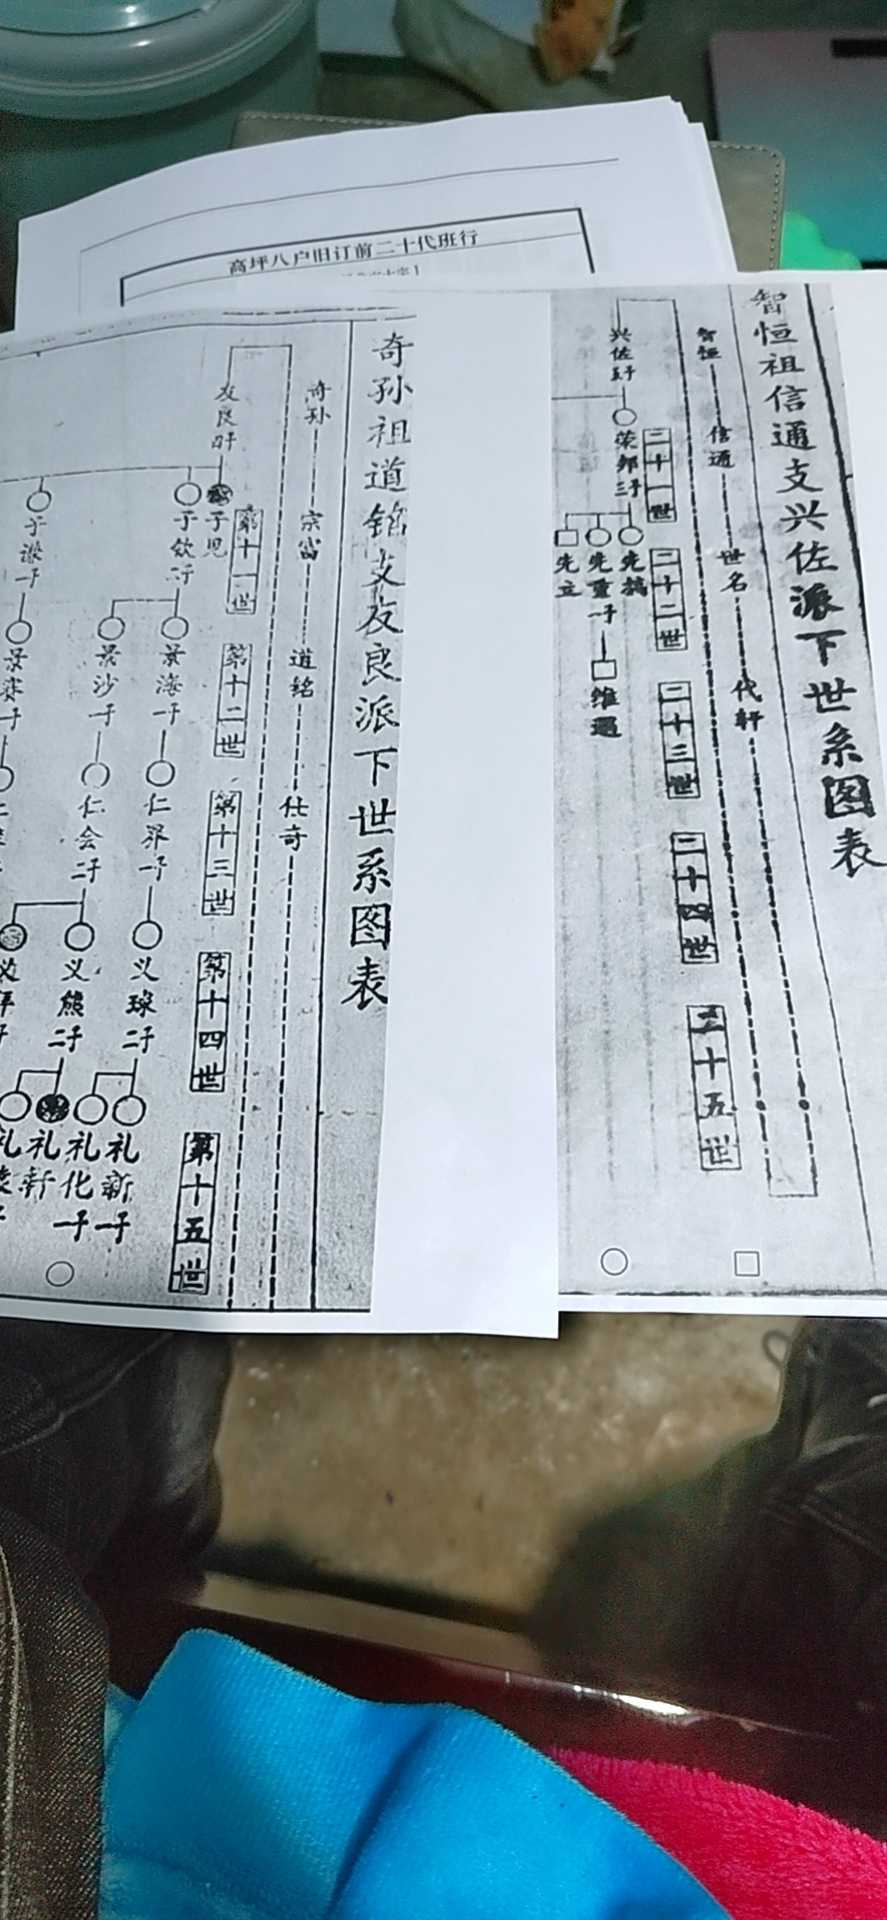 高坪八户旧订前二十代班行
智恒祖信通支兴佐派下世系图表
智恒
信通
世名
代轩
兴佐
二十一世
荣邦三子
二十二世
先
先重一子
先立
二十三世
维
二十四世
二十五世
奇孙祖道铭支友良派下世系图表
奇孙
宗富
道铭
仕奇
友良
第十一世
子児
子钦二子
子
一子
第十二世
景海一子
景沙一子
景
一子
第十三世
仁
一子
仁会二子
第十四世
义琛二子
义熊二子
第十五世
礼新一子
礼化一子
礼轩
礼